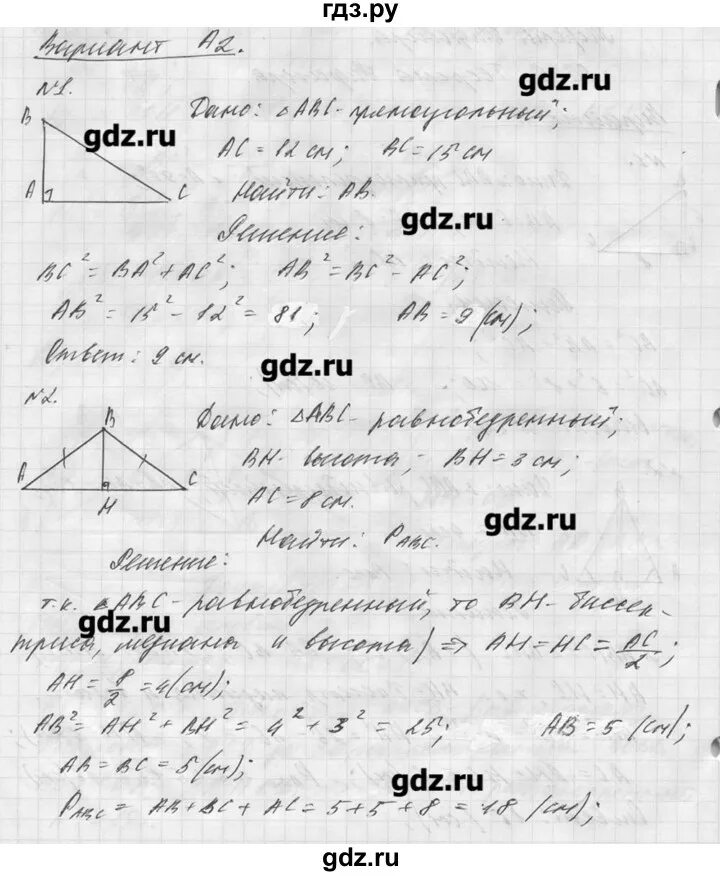 гдз.ру
Вариант А2.
№1.
B
A
C
Дано: △ABC-прямоугольный;
AC = 12 см; BC = 15 см
gdz.ru
Найти: AB.
gdz.ru
Решение:
BC² = BA² + AC²; AB² = BC² - AC²;
AB² = 15² - 12² = 81; AB = 9 (см);
Ответ: 9 см.
gdz.ru
№2.
B
A
H
C
Дано: △ABC-равнобедренный;
BH- высота; BH = 3 см;
AC = 8 см.
gdz.ru
Найти: P_ABC.
Решение:
т.к. △ABC-равнобедренный, то BH- биссек-
gdz.ru
триса, медиана и высота) ⇒ AH = HC = AC/2;
AH = 8/2 = 4(см);
AB² = AH² + BH² = 4² + 3² = 25; AB = 5 (см);
AB = BC = 5(см);
gdz.ru
P_ABC = AB + BC + AC = 5 + 5 + 8 = 18 (см);
gdz.ru